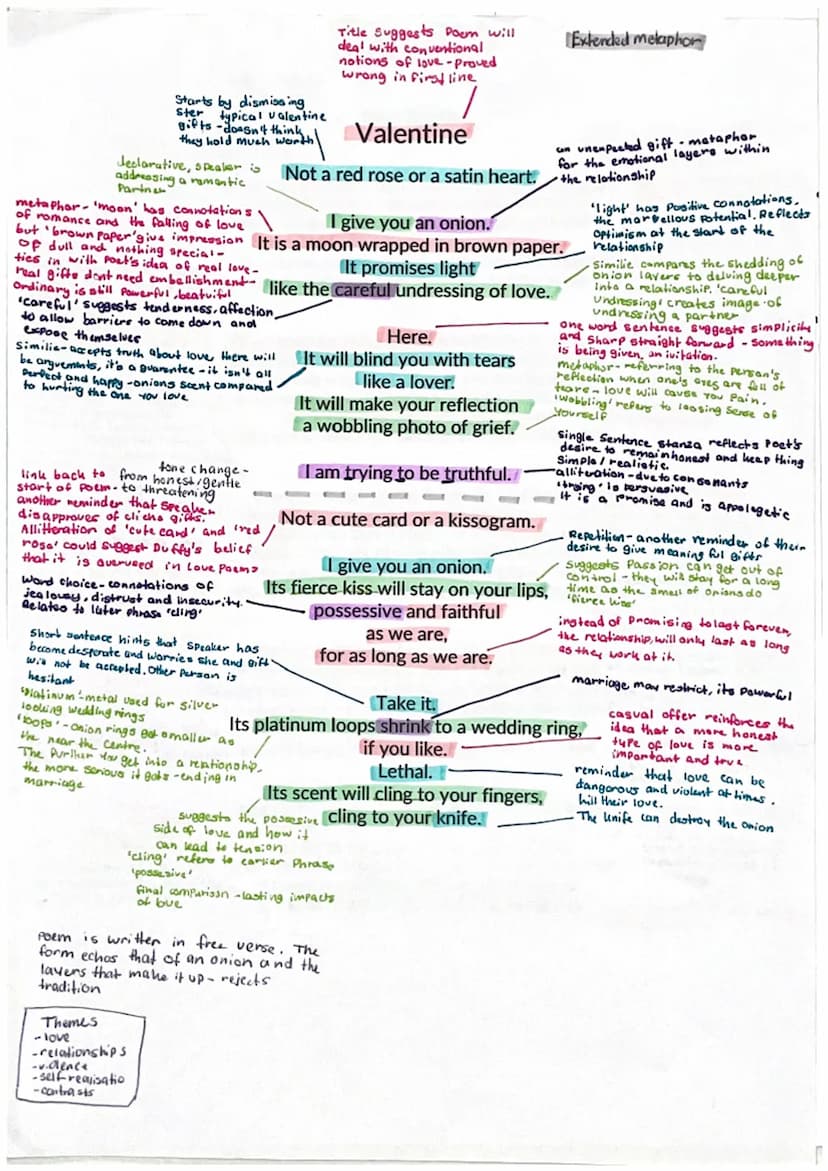 Title Suggests Poem will
deal with conventional
notions of love - proved
wrong in first line
Extended metaphor
Starts by dismissing
ster typical valentine
gifts - doesn't think
they hold much worth
Valentine
an unexpected gift - metaphor
for the emotional layers within
the relationship
declarative, speaker is
addressing a romantic
Partner
Not a red rose or a satin heart.
metaphor - 'moon' has connotations
of romance and the falling of love
but 'brown paper' give impression
of dull and nothing special -
ties in with Poet's idea of real love -
real gifts dont need embellishment -
Ordinary is still Powerful, beatuiful
I give you an onion.
It is a moon wrapped in brown paper.
It promises light
like the careful undressing of love.
'light' has Positive connotations,
the marvellous potential. Reflects
optimism at the start of the
relationship
Similie compares the shedding of
onion layers to delving deeper
into a relationship. 'careful
undressing' creates image of
undressing a partner
'Careful' suggests tenderness, affection
to allow barriers to come down and
expose themselves
Here.
one word sentence suggests simplicity
and sharp straight forward - something
is being given, an ivitation.
Similie - accepts truth about love there will
be arguements, it's a guarentee - it isn't all
Perfect and happy - onions scent compared
to hurting the one you love
It will blind you with tears
like a lover.
It will make your reflection
a wobbling photo of grief.
metaphor - referring to the person's
reflection when one's eyes are full of
tears - love will cause you pain.
'wobbling' refers to loosing sense of
yourself
I am trying to be truthful.
Single Sentence stanza reflects Poet's
desire to remain honest and keep thing
Simple / realistic.
alliteration - due to consonants
'trying' is persuasive
It is a Promise and is apologetic
tone change -
from honest/gentle
to threatening
link back to
start of poem -
another reminder that speaker
disapproves of cliche gifts.
Alliteration of 'cute card' and 'red
rose' could suggest Duffy's belief
that it is overused in love Poems
Not a cute card or a kissogram.
I give you an onion.
Its fierce kiss will stay on your lips,
possessive and faithful
as we are,
for as long as we are.
Repetition - another reminder of their
desire to give meaning ful gifts
Suggests Passion can get out of
control - they will stay for a long
time as the smell of onions do
'fierce kiss'
Word choice - connotations of
jealousy, distrust and insecurity.
Relates to later phrase 'cling'
instead of Promising to last forever,
the relationship, will only last as long
as they work at it.
Short sentence hints that speaker has
become desperate and worries she and gift
will not be accepted. Other Person is
hesitant
Take it.
Its platinum loops shrink to a wedding ring,
if you like.
marriage may restrict, its powerful
'Platinum' - metal used for silver
looking wedding rings
'loops' - Onion rings get smaller as
the near the centre.
The further you get into a relationship,
the more serious it gets - ending in
marriage
casual offer reinforces the
idea that a more honest
type of love is more
important and true
Lethal.
Its scent will cling to your fingers,
cling to your knife.
reminder that love can be
dangerous and violent at times.
kill their love.
The knife can destroy the onion
suggests the possesive
side of love and how it
can lead to tension
'cling' refers to earlier Phrase
'possesive'
final comparison - lasting impacts
of love
Poem is written in free verse. The
form echos that of an onion and the
layers that make it up - rejects
tradition
Themes
- love
- relationships
- violence
- self-realisatio
- contrasts